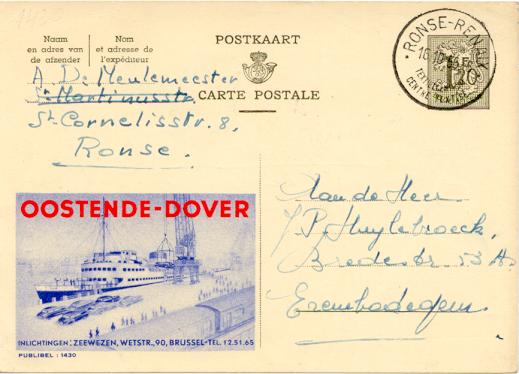 Naam
en adres van
de afzender
Nom
et adresse de
l'expéditeur
POSTKAART
CARTE POSTALE
A. De Meulemeester
St Martinusstr.
St Cornelisstr. 8,
Ronse.
RONSE-RENAIX
1,20
OOSTENDE-DOVER
INLICHTINGEN: ZEEWEZEN, WETSTR., 90, BRUSSEL-TEL. 12.51.65
PUBLIBEL : 1430
Aan de Heer
P. Huylebroeck,
Bredestr. 53 A.
Erembodegem